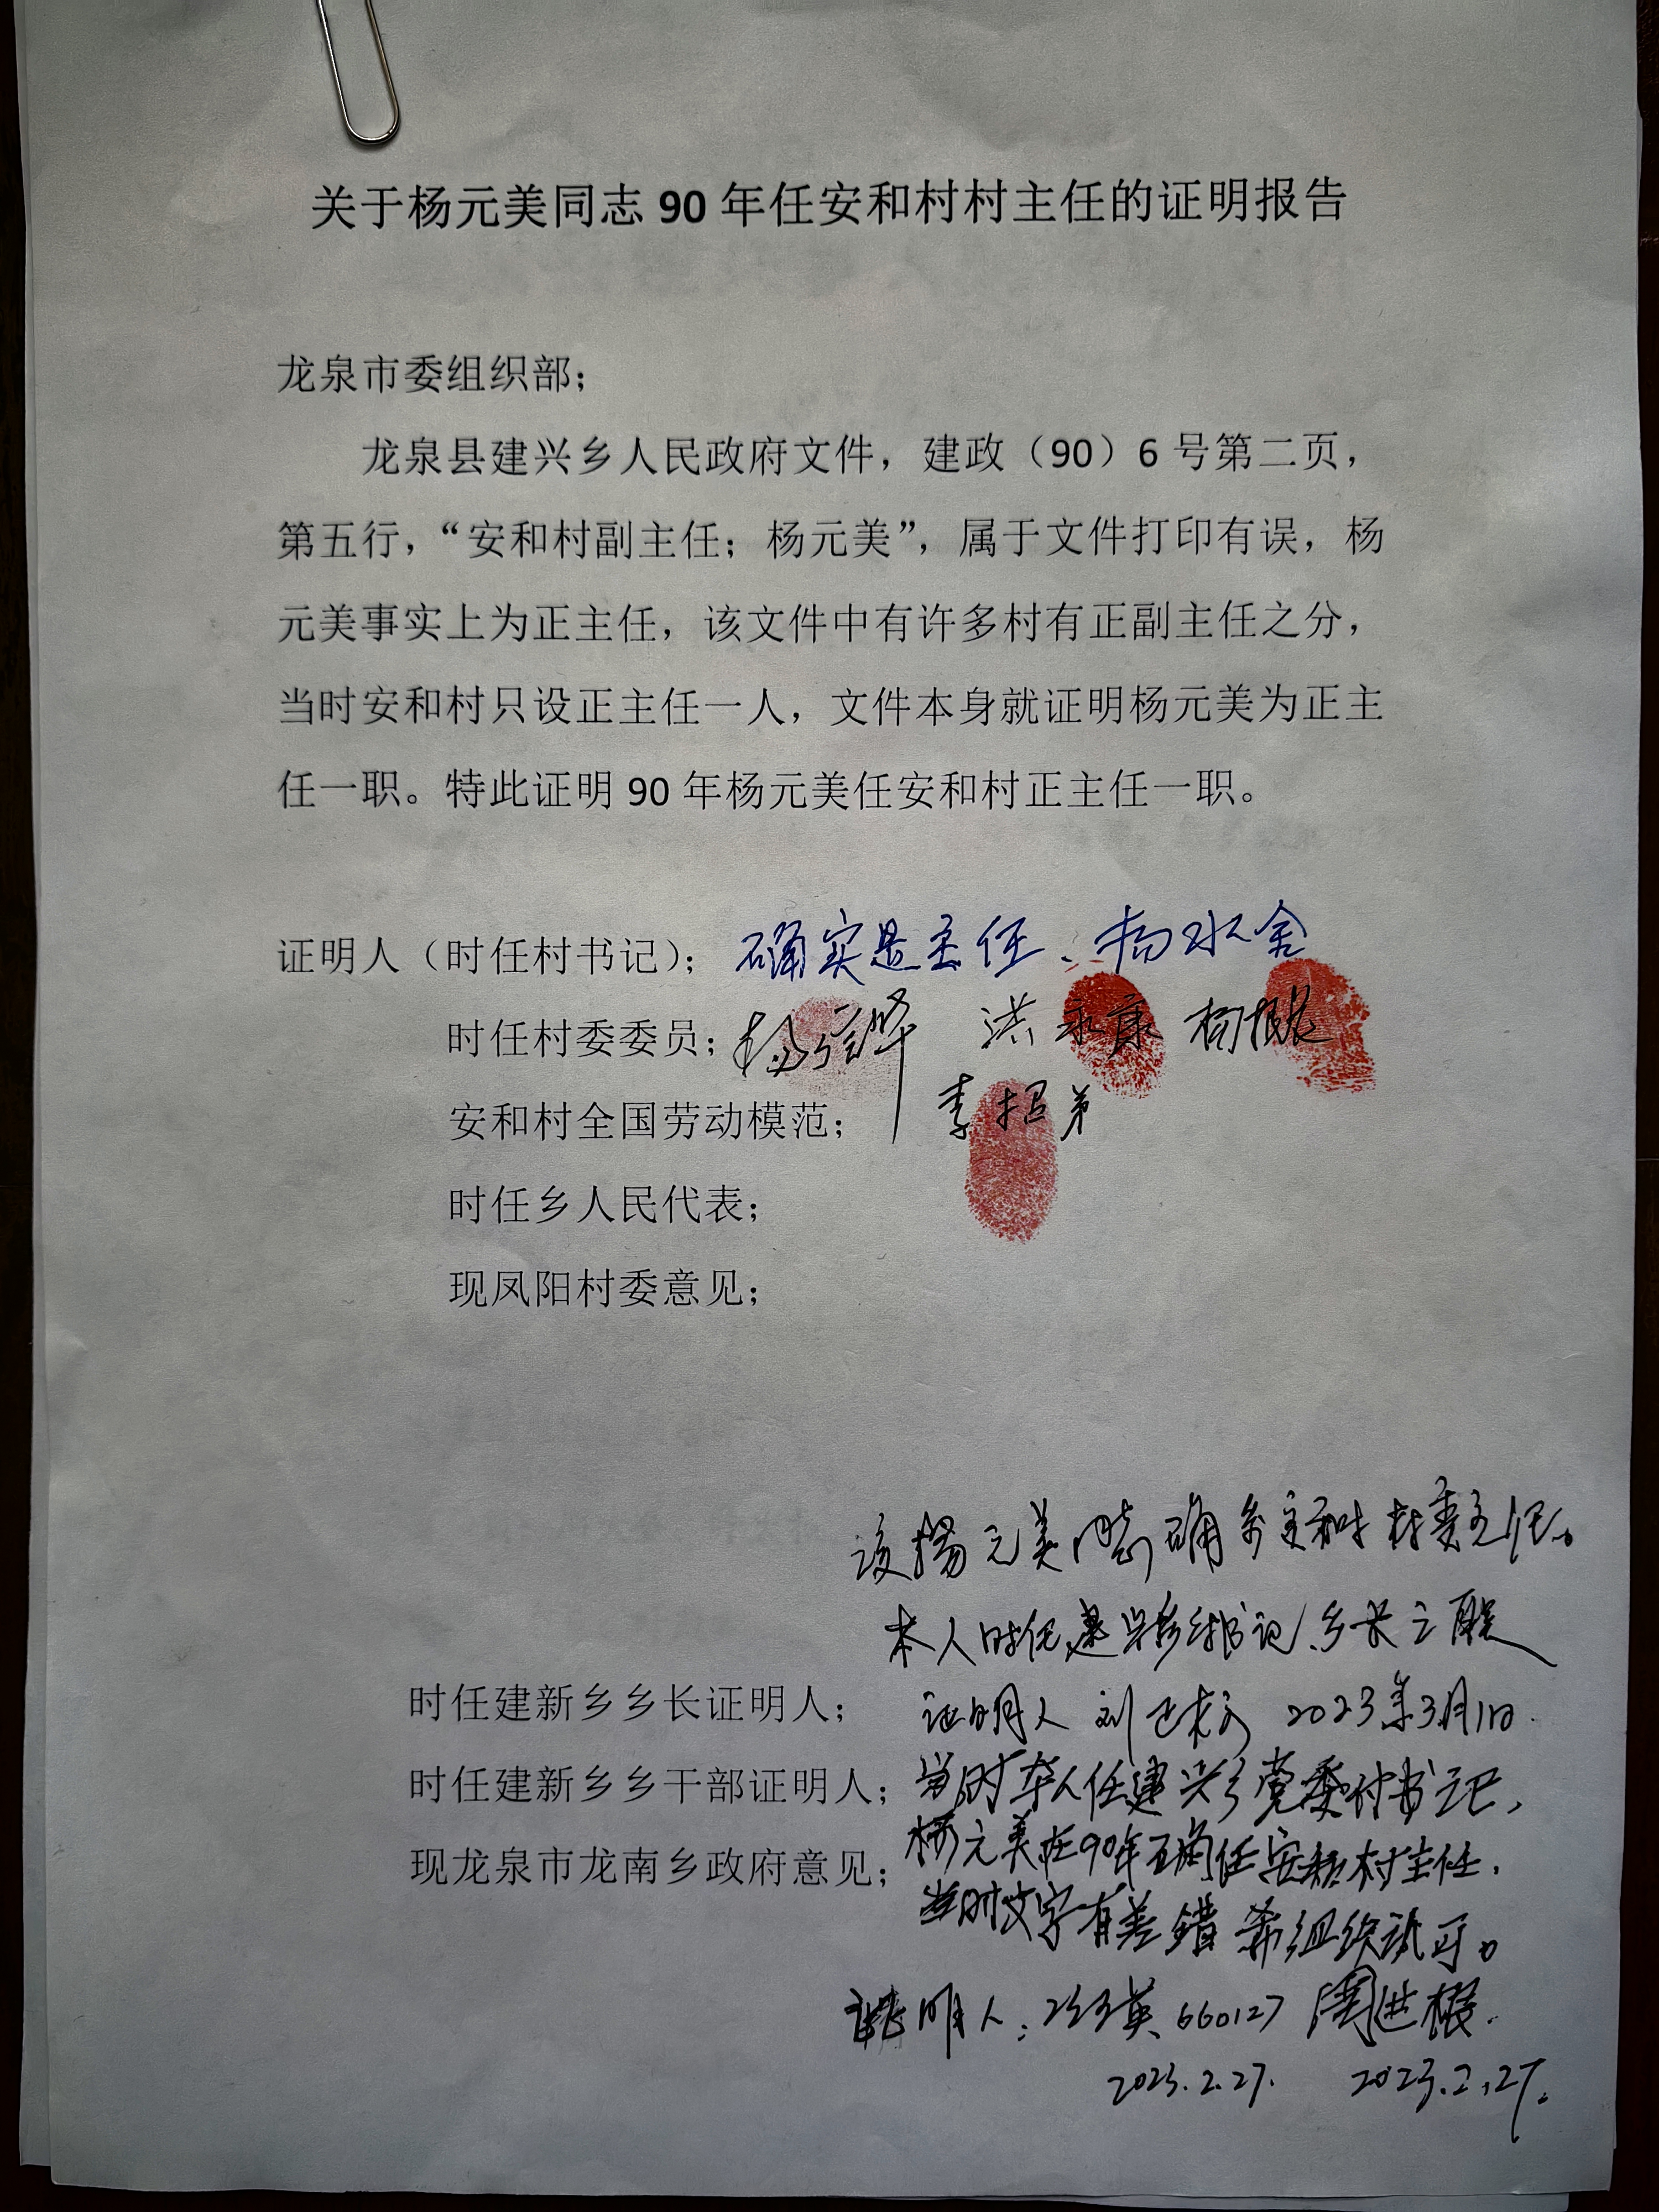 关于杨元美同志 90 年任安和村村主任的证明报告
龙泉市委组织部；
龙泉县建兴乡人民政府文件，建政（90）6 号第二页，
第五行，“安和村副主任；杨元美”，属于文件打印有误，杨
元美事实上为正主任，该文件中有许多村有正副主任之分，
当时安和村只设正主任一人，文件本身就证明杨元美为正主
任一职。特此证明 90 年杨元美任安和村正主任一职。
证明人（时任村书记）；确实是主任、杨水舍
时任村委委员； 洪永康
安和村全国劳动模范； 李招弟
时任乡人民代表；
现凤阳村委意见；
该杨元美同志确系 村委主任。
本人时任建兴乡 书记、乡长之职
时任建新乡乡长证明人； 证明人 刘 2023年3月1日.
时任建新乡乡干部证明人； 当时本人任建兴乡党委付书记，
杨元美在90年正确任安和村主任.
现龙泉市龙南乡政府意见；
当时文字有差错 希组织认可。
证明人： 英 660127 周进根.
2023.2.27. 2023.2.27.